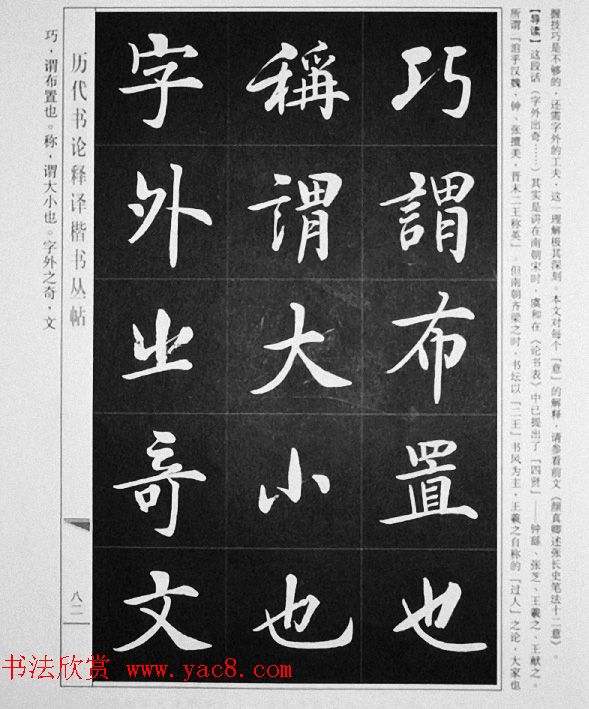 握技巧是不够的，还需字外的工夫，这一理解极其深刻。本文对每个「意」的解释，请参看前文《颜真卿述张长史笔法十二意》。
【导读】这段话（字外出奇……）其实是讲在南朝宋时，虞和在《论书表》中已提出了「四贤」——钟繇、张芝、王羲之、王献之。
所谓「洎乎汉魏，钟、张擅美，晋末二王称英」。但南朝齐梁之时，书坛以「二王」书风为主，王羲之自称的「过人」之论，大家也
巧謂布置也
稱謂大小也
字外之奇文
历代书论释译楷书丛帖
八二
巧，谓布置也。称，谓大小也。字外之奇，文
书法欣赏 www.yac8.com